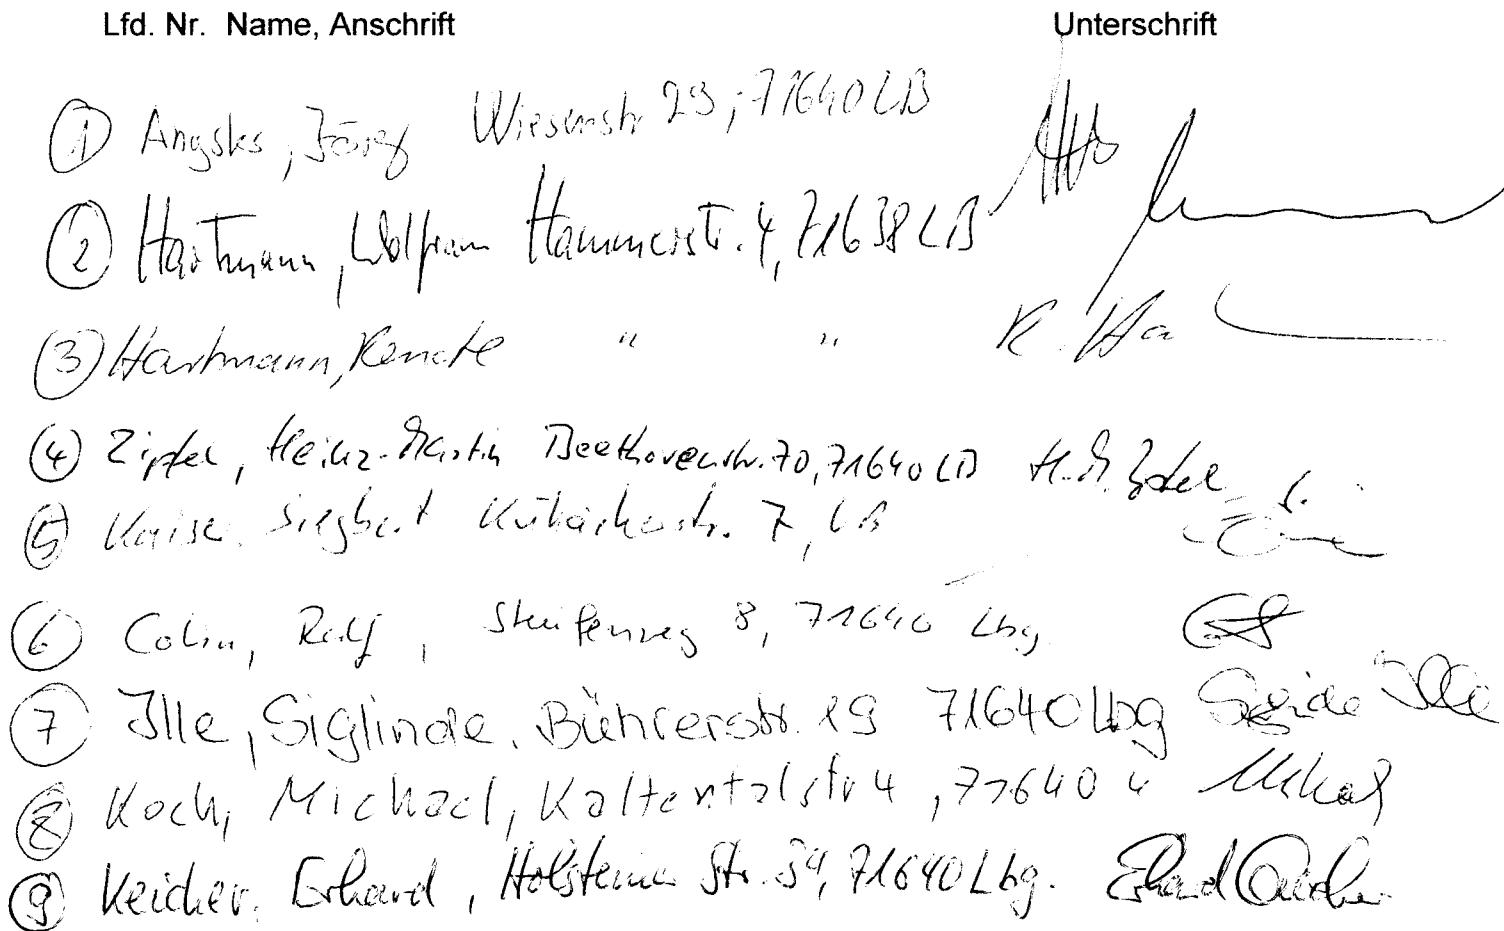 Lfd. Nr. Name, Anschrift Unterschrift
① Jörg Wiesenstr 29, 71640 LB
② Hartmann, Wolfram Hammerstr. 4, 71638 LB
③ Hartmann, Renate " " R. Ha
④ Zipfel, Heinz-Martin Beethovenstr. 70, 71640 LB H.M. Zipfel
⑤ Siegbert 7, LB
⑥ Colin, Ralf, 8, 71640 Lbg.
⑦ Ille, Siglinde, Bührerstr. 19 71640 Lbg Ille
⑧ Koch, Michael, Kaltentalstr 4, 71640 "
⑨ Keicher, Erhard, Holsteiner Str. 54, 71640 Lbg. Erhard Keicher